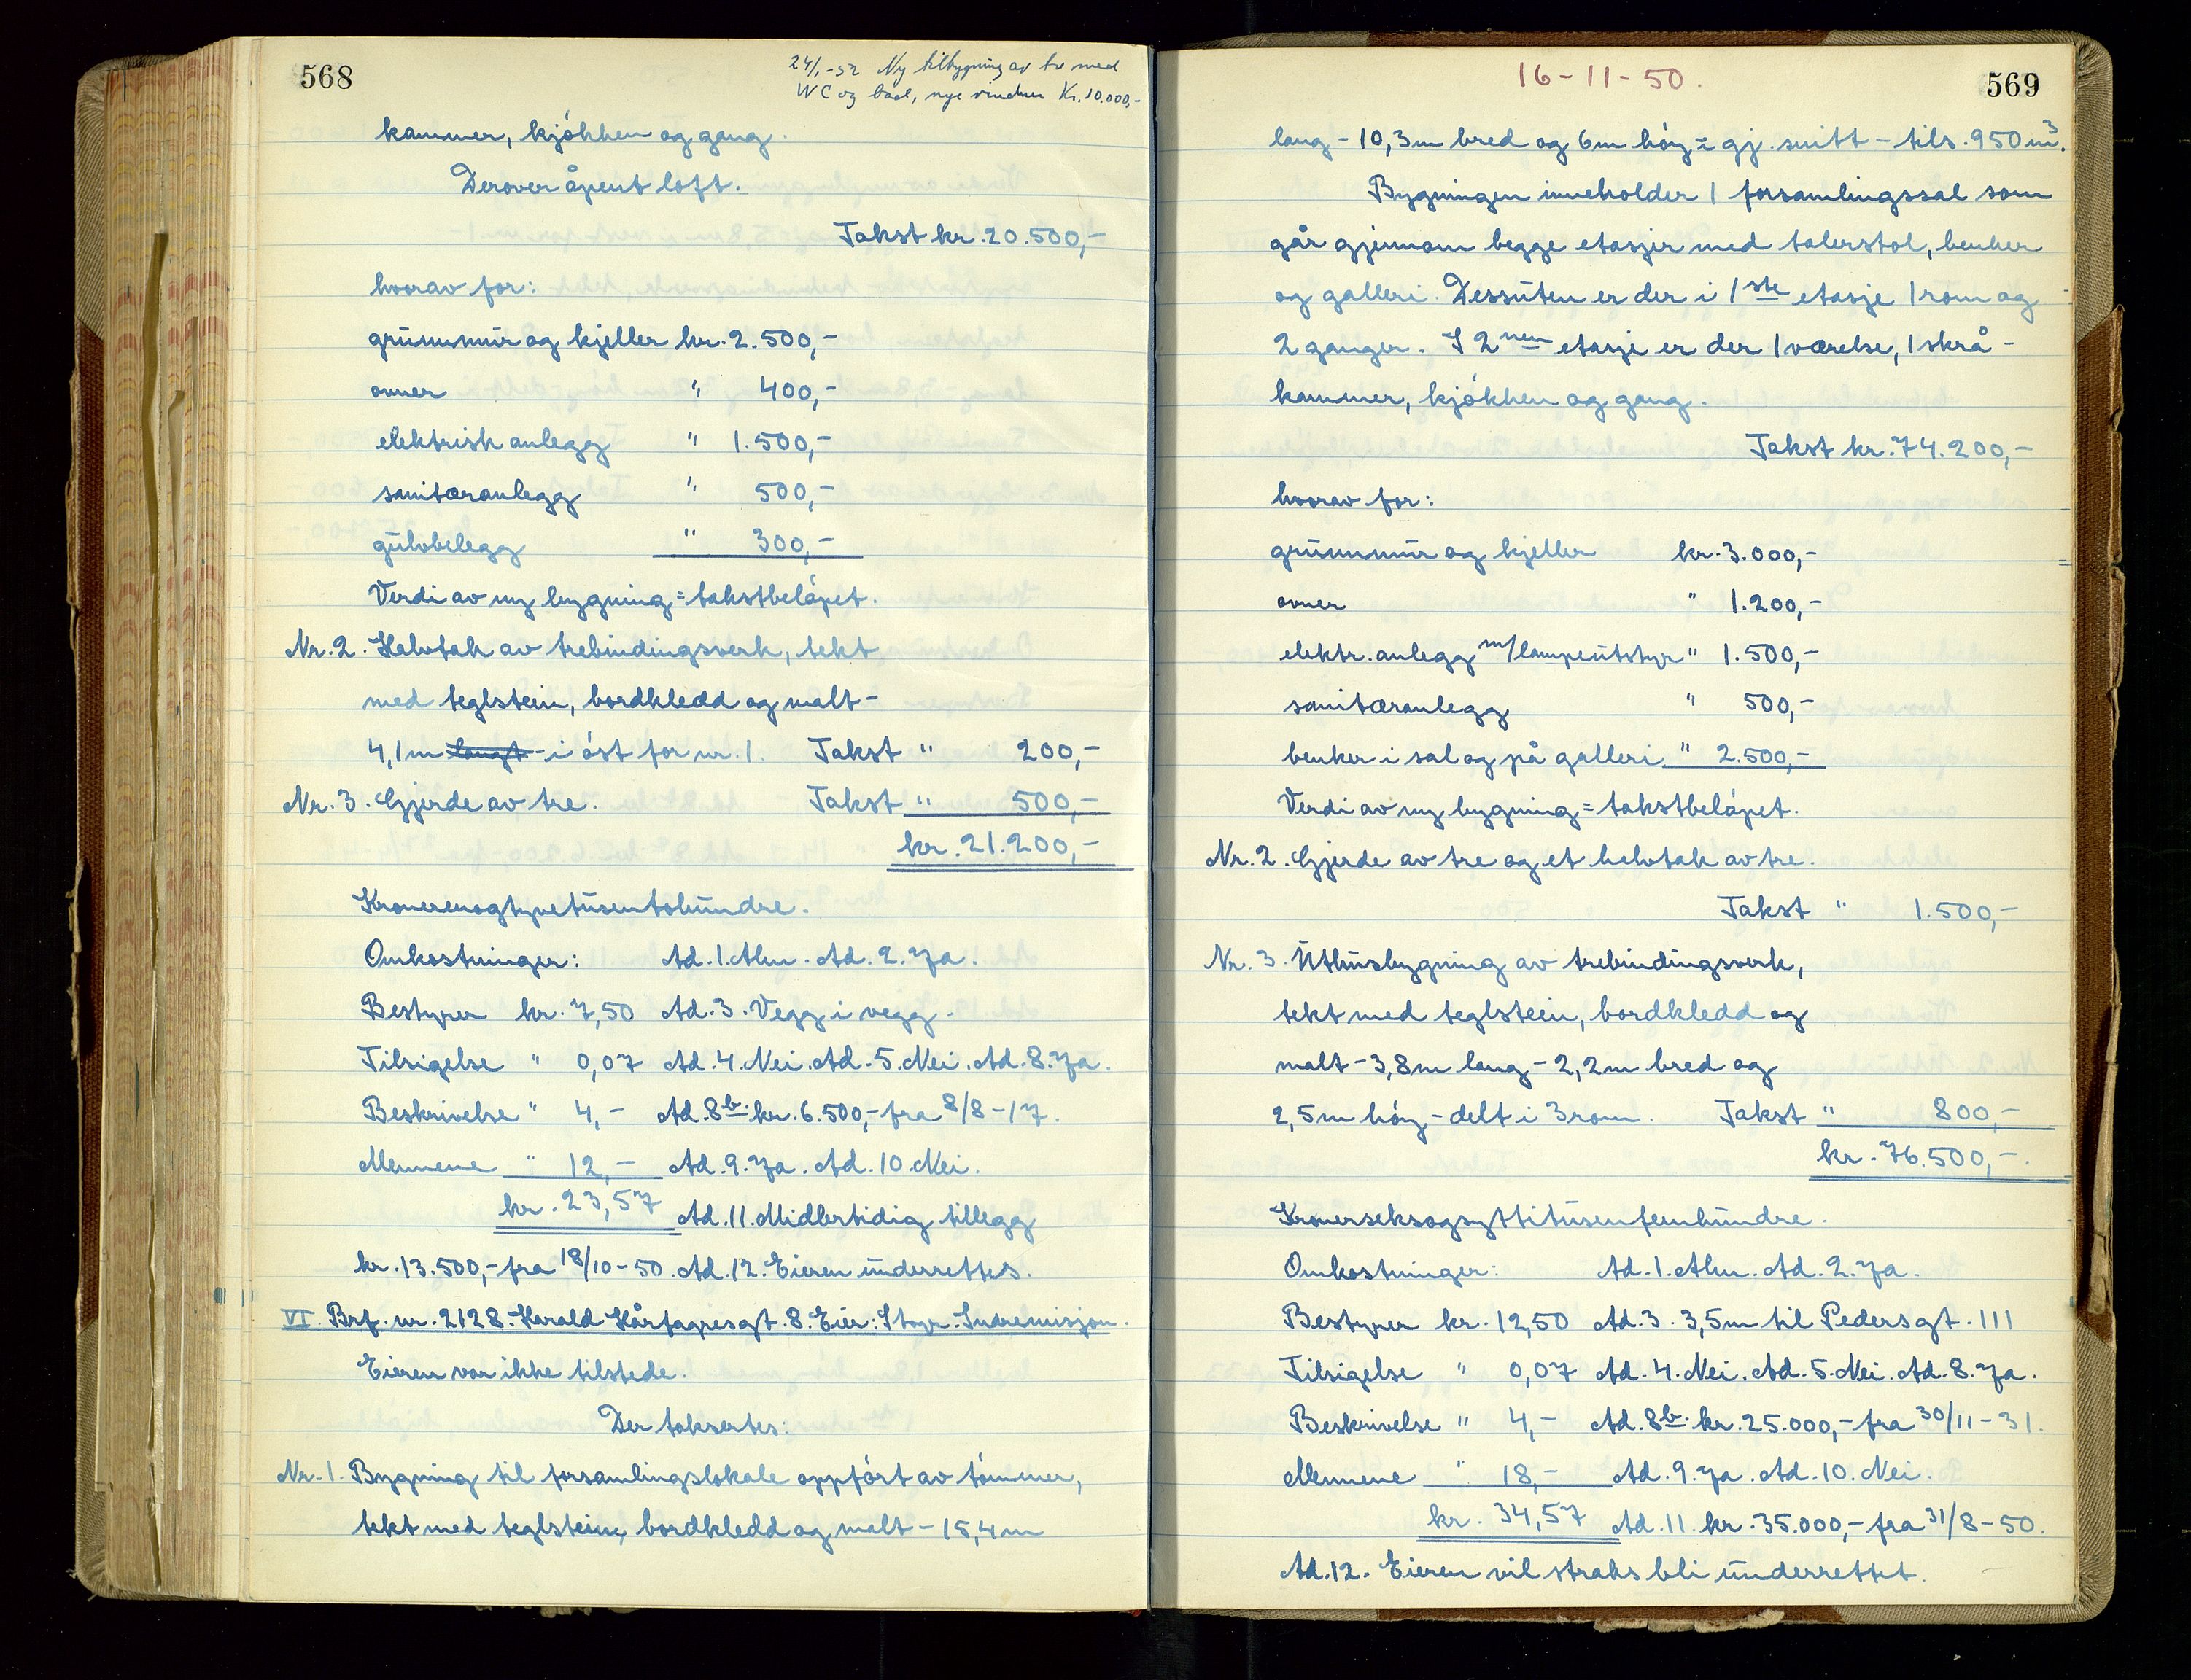 568
24/1-52 Ny tilbygning av tre med
WC og bad, nye vinduer Kr. 10.000,-
kammer, kjøkken og gang.
Derover åpent loft.
Takst kr. 20.500,-
hvorav for:
grunnmur og kjeller kr. 2.500,-
ovner " 400,-
elektrisk anlegg " 1.500,-
sanitæranlegg " 500,-
gulvbelegg " 300,-
Verdi av ny bygning = takstbeløpet.
Nr. 2. Halvtak av trebindingsverk, tekt
med teglstein, bordkledd og malt -
4,1m langt - i øst for nr. 1. Takst " 200,-
Nr. 3. Gjerde av tre. Takst " 500,-
kr. 21.200,-
Kronerenogtyvetusentohundre.
Omkostninger: Ad. 1. Alm. Ad. 2. Ja.
Bestyrer kr. 7,50 Ad. 3. Vegg i vegg.
Tilsigelse " 0,07 Ad. 4. Nei. Ad. 5. Nei. Ad. 8. Ja.
Beskrivelse " 4,- Ad. 8b. kr. 6.500,- fra 8/8-17.
Mennene " 12,- Ad. 9. Ja. Ad. 10. Nei.
kr. 23,57 Ad. 11. Midlertidig tillegg
kr. 13.500,- fra 18/10-50. Ad. 12. Eieren underrettes.
VI. Brf. nr. 2128. Harald Hårfagresgt. 8. Eier: Stvgr. Indremisjon.
Eieren var ikke tilstede.
Der taksertes:
Nr. 1. Bygning til forsamlingslokale oppført av tømmer,
tekt med teglstein, bordkledd og malt - 15,4m
16-11-50.
569
lang - 10,3m bred og 6m høy i gj. snitt - tils. 950 m³.
Bygningen inneholder 1 forsamlingssal som
går gjennom begge etasjer med talerstol, benker
og galleri. Dessuten er der i 1ste etasje 1 rom og
2 ganger. I 2nen etasje er der 1 værelse, 1 skrå-
kammer, kjøkken og gang.
Takst kr. 74.200,-
hvorav for:
grunnmur og kjeller kr. 3.000,-
ovner " 1.200,-
elektr. anlegg m/lampeutstyr " 1.500,-
sanitæranlegg " 500,-
benker i sal og på galleri " 2.500,-
Verdi av ny bygning = takstbeløpet.
Nr. 2. Gjerde av tre og et halvtak av tre.
Takst " 1.500,-
Nr. 3. Uthusbygning av trebindingsverk,
tekt med teglstein, bordkledd og
malt - 3,8m lang - 2,2m bred og
2,5m høy - delt i 3 rom. Takst " 800,-
kr. 76.500,-.
Kronerseksogsyttitusenfemhundre.
Omkostninger: Ad. 1. Alm. Ad. 2. Ja.
Bestyrer kr. 12,50 Ad. 3. 3,5m til Pedersgt. 111
Tilsigelse " 0,07 Ad. 4. Nei. Ad. 5. Nei. Ad. 8. Ja.
Beskrivelse " 4,- Ad. 8b. kr. 25.000,- fra 30/11-31.
Mennene " 18,- Ad. 9. Ja. Ad. 10. Nei.
kr. 34,57 Ad. 11. kr. 35.000,- fra 31/8-50.
Ad. 12. Eieren vil straks bli underrettet.